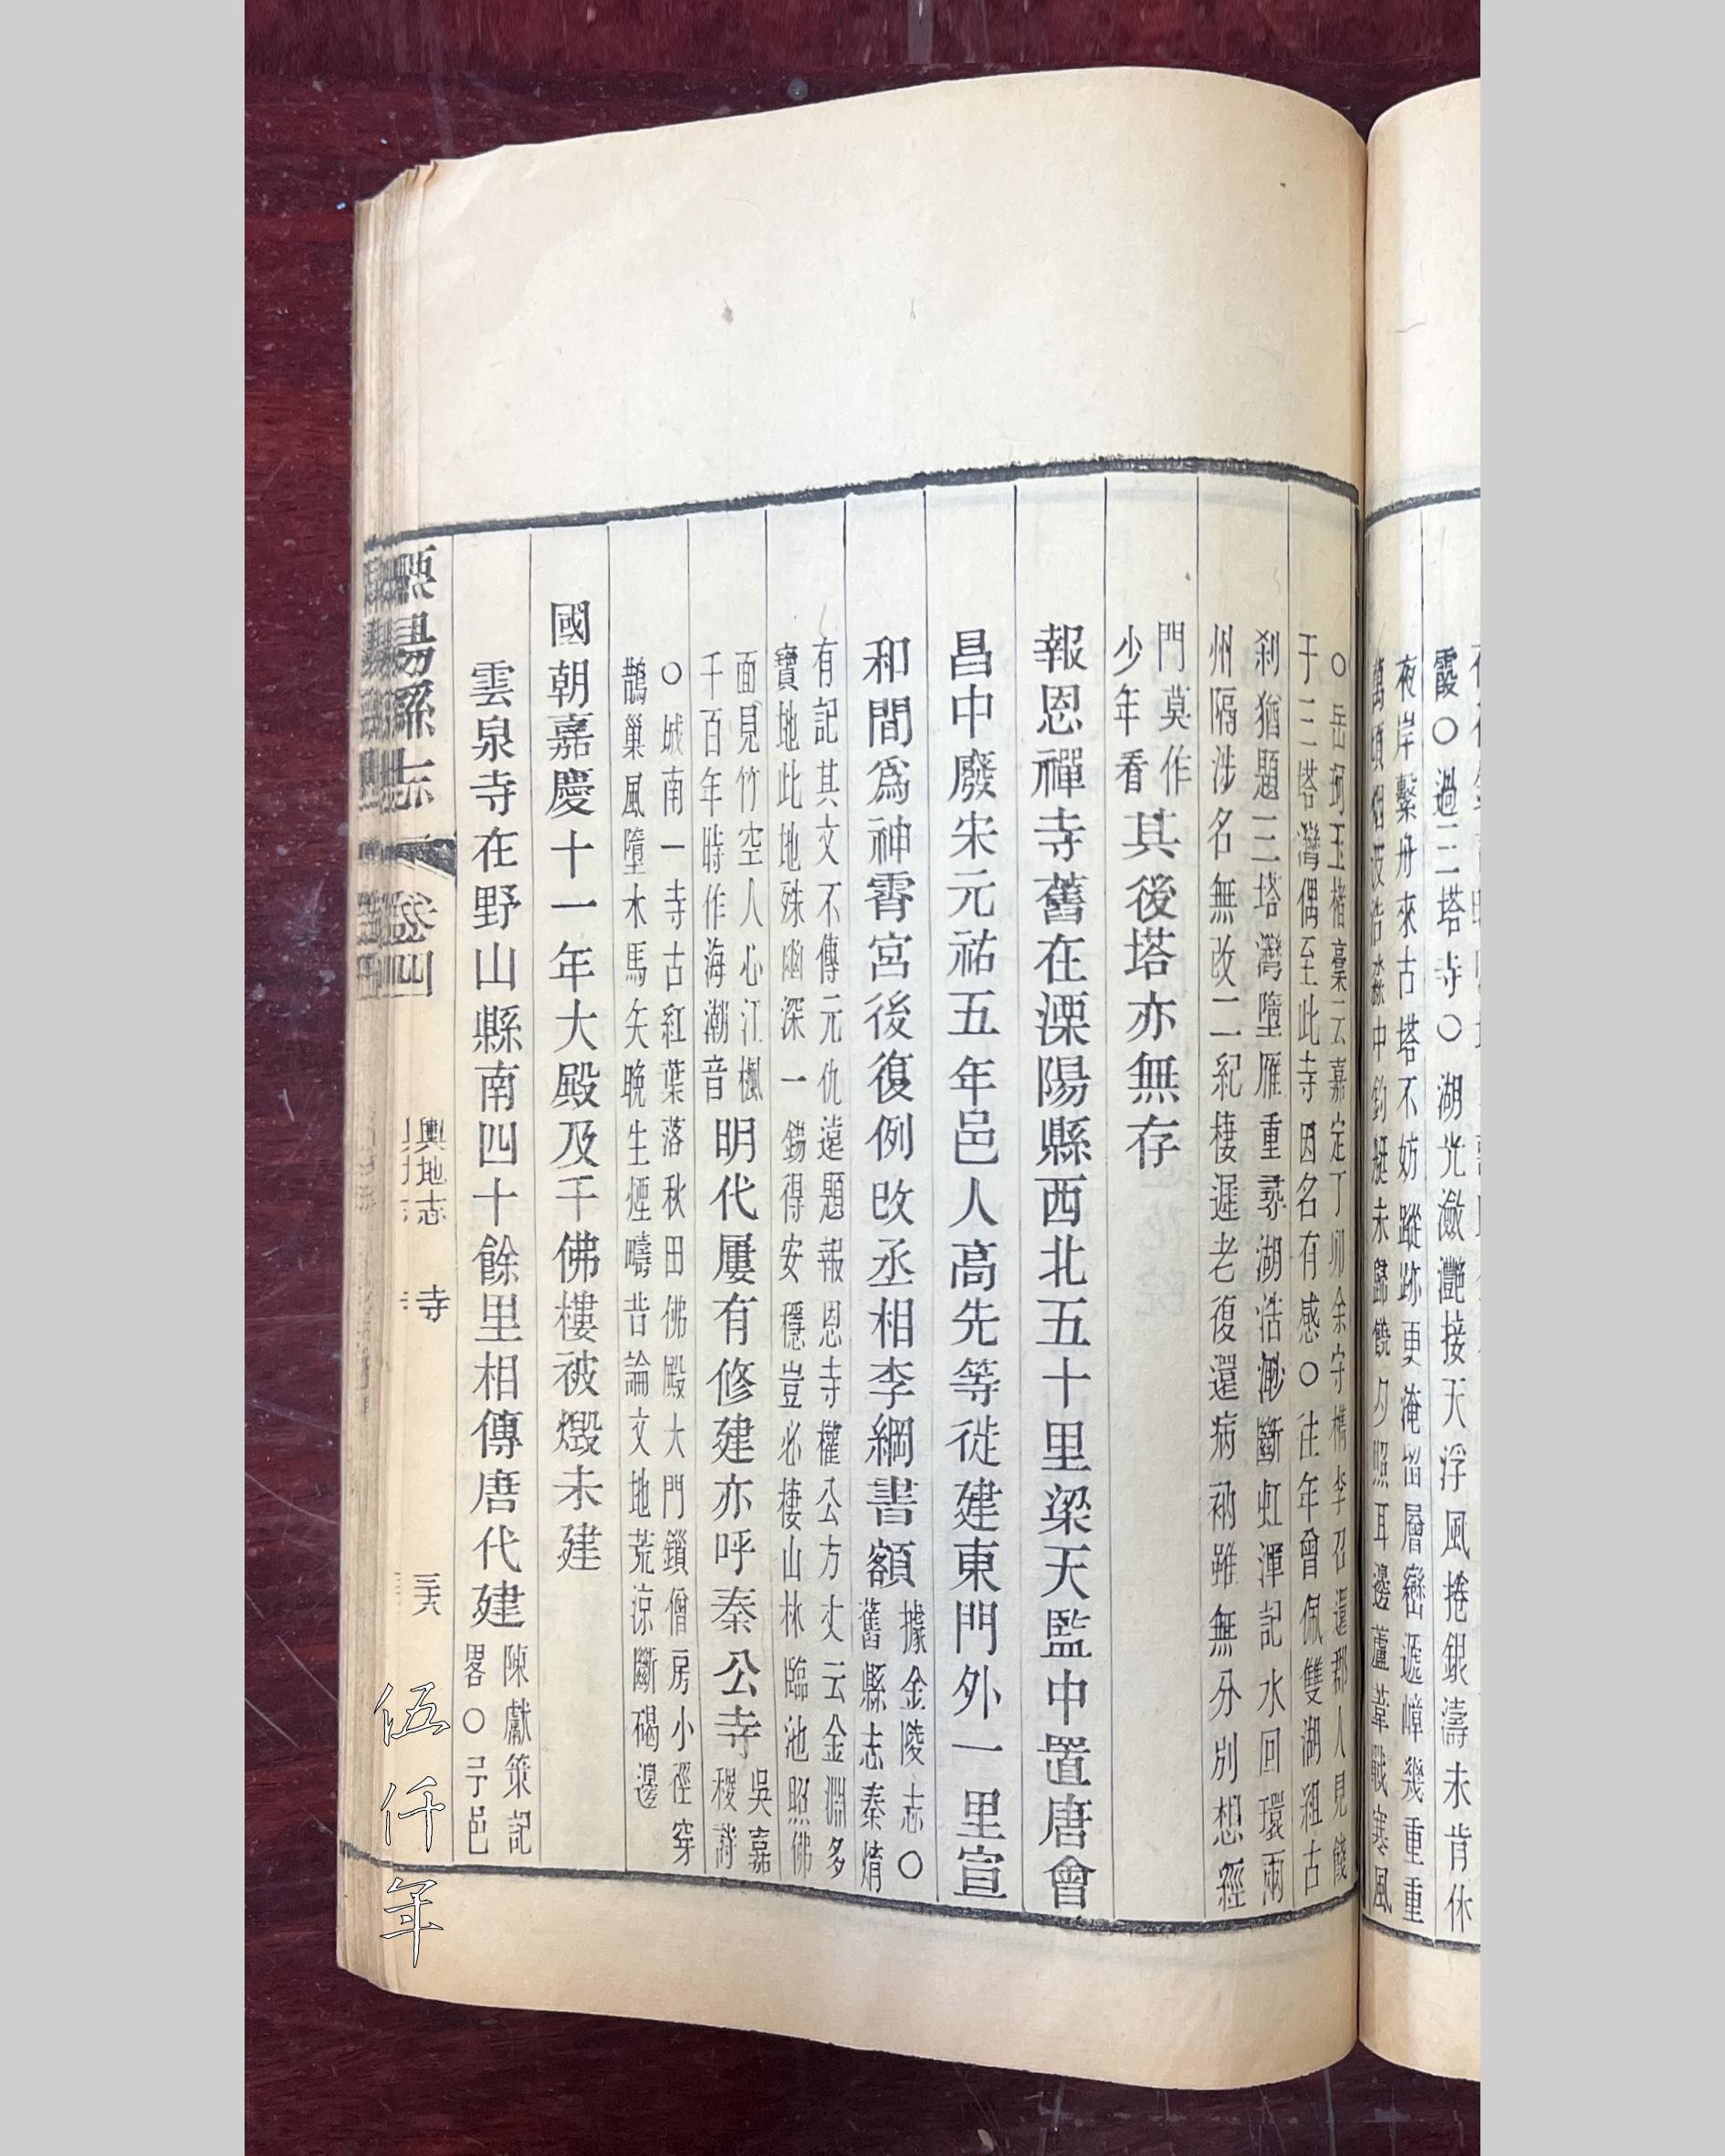 霞○過三塔寺○湖光瀲灔接天浮風捲銀濤未肯休
夜岸繫舟來古塔不妨蹤跡更淹留層巒遞嶂幾重重
萬頃烟波浩淼中釣艇未歸饒夕照耳邊蘆葦戰寒風
○岳珂玉楮稾云嘉定丁卯余守檇李召還郡人見餞
于三塔灣偶至此寺因名有感○往年曾佩雙湖組古
刹猶題三塔灣墮雁重尋湖浩渺斷虹渾記水回環兩
州隔涉名無改二紀棲遲老復還病衲雖無分別想經
門莫作
少年看
其後塔亦無存
報恩禪寺舊在溧陽縣西北五十里梁天監中置唐會
昌中廢宋元祐五年邑人高先等徙建東門外一里宣
和間爲神霄宮後復例改丞相李綱書額
據金陵志○
舊縣志秦焴
有記其文不傳元仇遠題報恩寺權公方丈云金淵多
寶地此地殊幽深一錫得安穩豈必棲山林臨池照佛
面見竹空人心江楓
千百年時作海潮音
明代屢有修建亦呼秦公寺
吳嘉
稷詩
○城南一寺古紅葉落秋田佛殿大門鎖僧房小徑穿
鵲巢風墮木馬矢晩生煙疇昔論文地荒涼斷碣邊
國朝嘉慶十一年大殿及千佛樓被燬未建
雲泉寺在野山縣南四十餘里相傳唐代建
陳獻策記
畧○予邑
溧陽縣志
卷四
輿地志 寺
三六
伍仟年